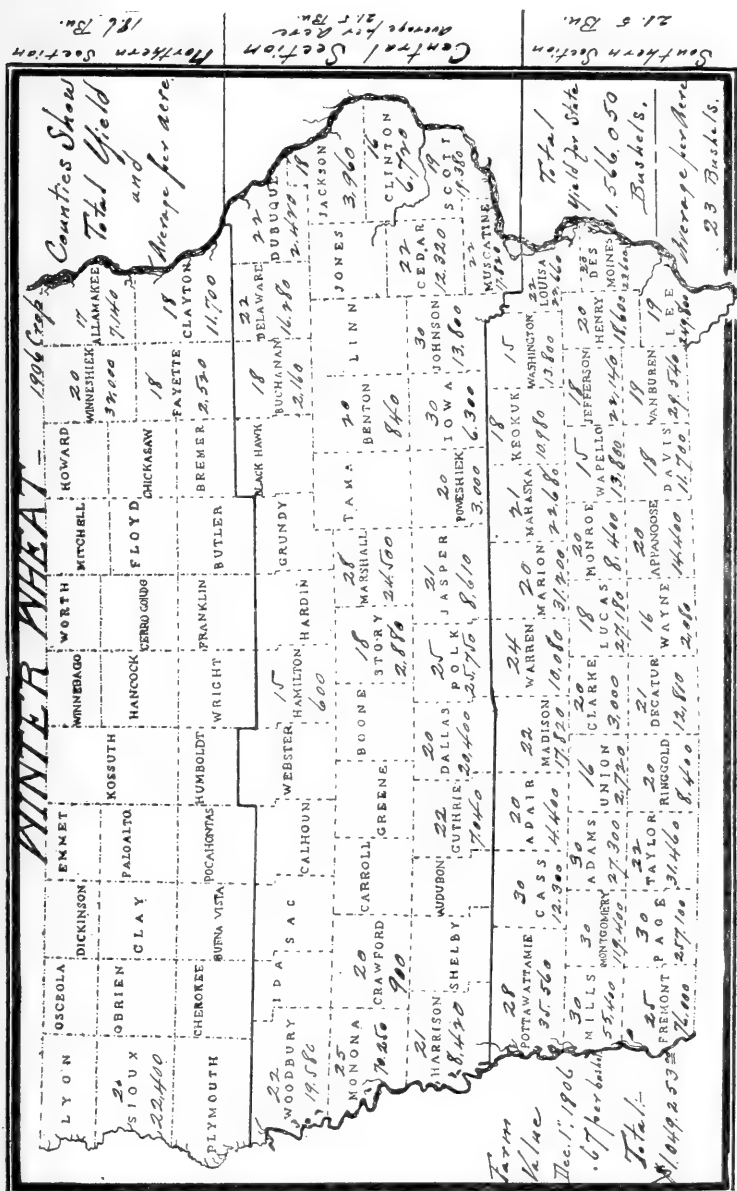 WINTER WHEAT – 1906 Crop
Counties Show
Total Yield
and
Average per Acre
Northern Section
18.6 Bu.
Central Section
Average per Acre
21.5 Bu.
Southern Section
21.5 Bu.
LYON
OSCEOLA
DICKINSON
EMMET
WINNEBAGO
WORTH
MITCHELL
HOWARD
20
WINNESHIEK
32,000
17
ALLAMAKEE
7,140
20
SIOUX
22,400
OBRIEN
CLAY
PALOALTO
KOSSUTH
HANCOCK
CERRO GORDO
FLOYD
CHICKASAW
18
FAYETTE
2,520
18
CLAYTON
11,700
PLYMOUTH
CHEROKEE
BUENA VISTA
POCAHONTAS
HUMBOLDT
WRIGHT
FRANKLIN
BUTLER
BREMER
22
WOODBURY
19,580
IDA
SAC
CALHOUN
WEBSTER
15
HAMILTON
600
HARDIN
GRUNDY
BLACK HAWK
18
BUCHANAN
2,160
22
DELAWARE
16,280
22
DUBUQUE
2,420
25
MONONA
70,250
20
CRAWFORD
900
CARROLL
GREENE
BOONE
18
STORY
2,880
28
MARSHALL
24,500
TAMA
20
BENTON
840
LINN
JONES
18
JACKSON
3,960
16
CLINTON
6,720
21
HARRISON
8,420
SHELBY
AUDUBON
22
GUTHRIE
7,040
20
DALLAS
20,400
25
POLK
25,750
21
JASPER
8,610
20
POWESHIEK
3,000
30
IOWA
6,300
30
JOHNSON
13,800
22
CEDAR
12,320
19
SCOTT
19,380
22
MUSCATINE
17,820
28
POTTAWATTAMIE
35,560
30
CASS
12,300
20
ADAIR
4,400
22
MADISON
17,820
24
WARREN
10,080
20
MARION
31,200
21
MAHASKA
22,680
18
KEOKUK
10,980
15
WASHINGTON
13,800
22
LOUISA
22,660
30
MILLS
55,400
30
MONTGOMERY
119,400
30
ADAMS
27,300
16
UNION
2,720
20
CLARKE
3,000
18
LUCAS
27,180
20
MONROE
8,400
15
WAPELLO
13,800
18
JEFFERSON
22,140
20
HENRY
18,600
23
DES
MOINES
25
FREMONT
76,000
30
PAGE
257,100
22
TAYLOR
31,460
20
RINGGOLD
8,400
21
DECATUR
12,810
16
WAYNE
2,080
20
APPANOOSE
14,400
18
DAVIS
11,700
19
VAN BUREN
29,540
19
LEE
Farm
Value
Dec. 1st, 1906
.67 per bushel
Total–
$1,049,253
Total
Yield for State
1,566,050
Bushels.
Average per Acre
23 Bushels.